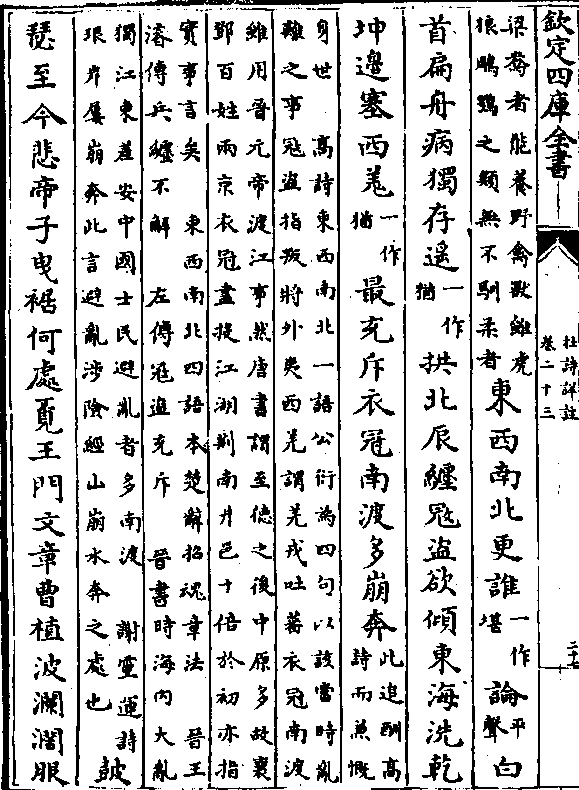 欽定四庫全書
杜詩詳註
卷二十三
二十七
梁鴦者能養野禽獸雖虎
狼鵰鶚之類無不馴柔者
東西南北更誰
一作
堪
論
平
聲
白
首扁舟病獨存遥
一作
猶
拱北辰纏冦盗欲傾東海洗乾
坤邊塞西羌
一作
猶
最充斥衣冠南渡多崩奔
此追酬髙
詩而兼慨
身世　髙詩東西南北一語公衍為四句以該當時亂
離之事冦盗指叛將外夷西羌謂羌戎吐蕃衣冠南渡
維用晉元帝渡江事然唐書謂至德之後中原多故襄
鄧百姓兩京衣冠盡投江湖荆南井邑十倍於初亦指
實事言矣　東西南北四語本楚辭招魂章法　晉王
濬傳兵纏不解　左傳冦盗充斥　晉書時海内大亂
獨江東差安中國士民避亂者多南渡　謝靈運詩
垠岸屢崩奔此言避亂涉險經山崩水奔之處也
鼓
瑟至今悲帝子曳裾何處覓王門文章曹植波瀾濶服